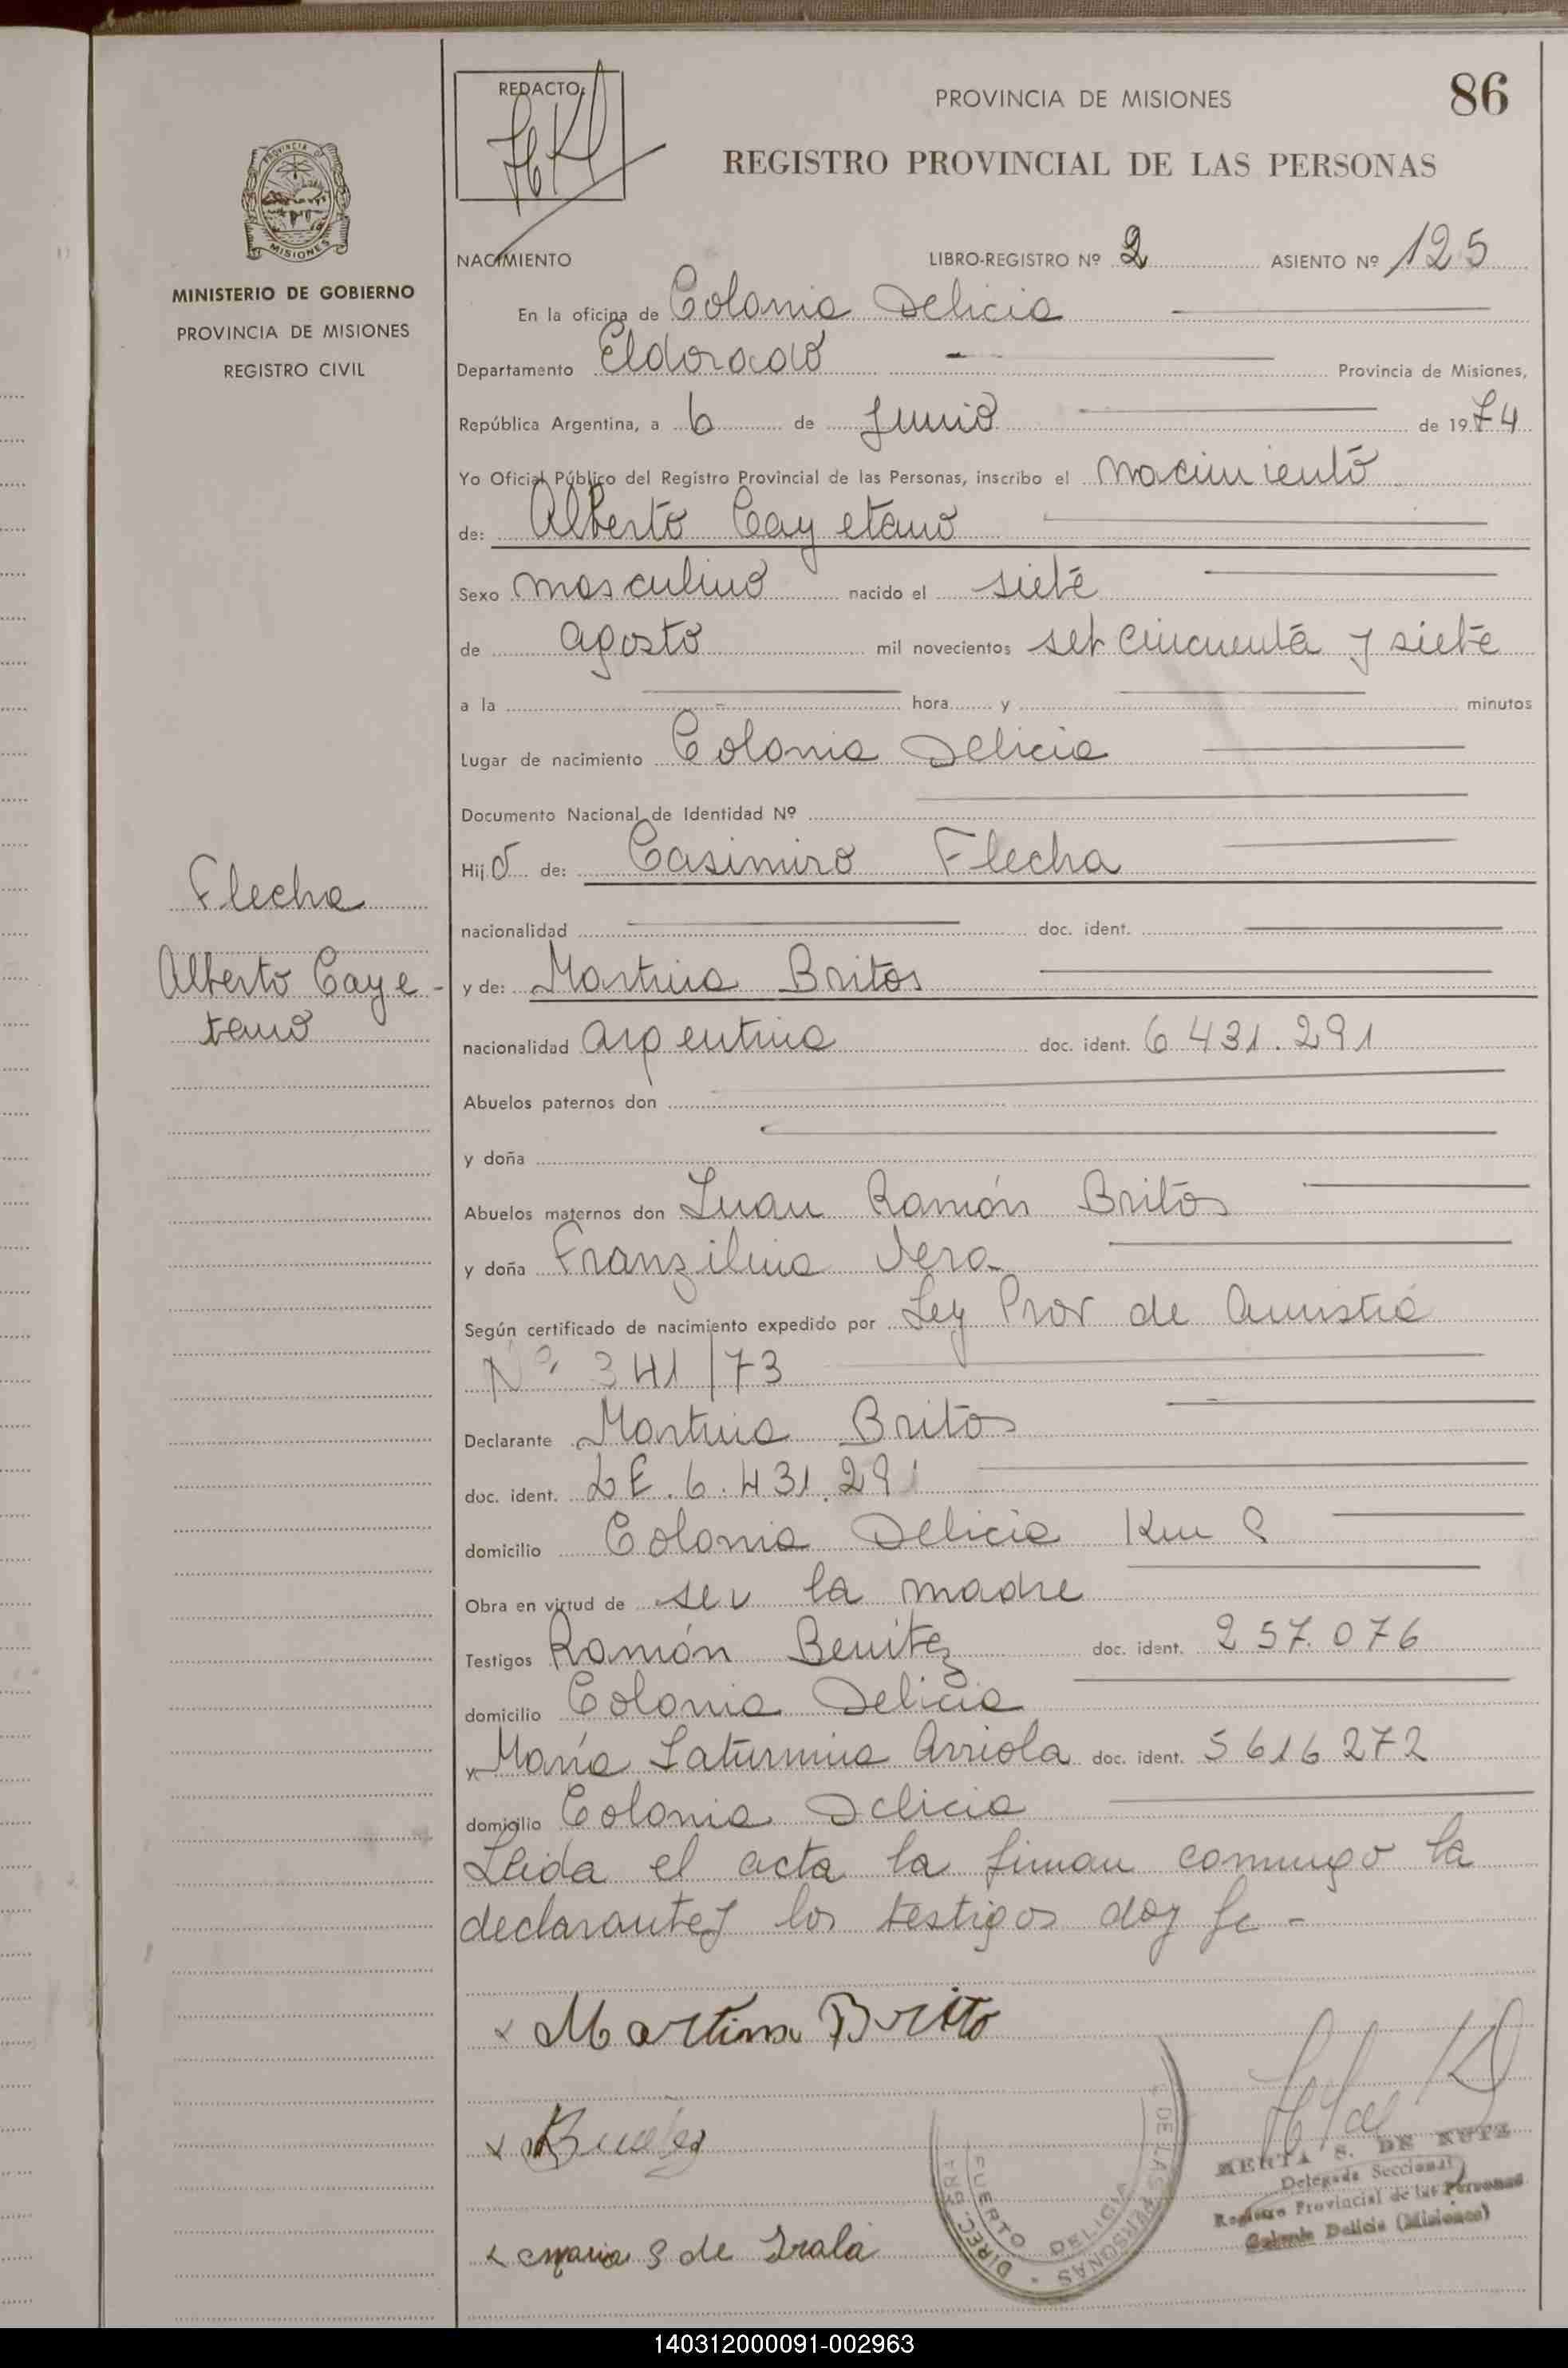 86
REDACTO:
PROVINCIA DE MISIONES
REGISTRO PROVINCIAL DE LAS PERSONAS
PROVINCIA
MISIONES
MINISTERIO DE GOBIERNO
PROVINCIA DE MISIONES
REGISTRO CIVIL
NACIMIENTO LIBRO-REGISTRO Nº 2 ASIENTO Nº 125
En la oficina de Colonia Delicia
Departamento Eldorado Provincia de Misiones,
República Argentina, a 6 de Junio de 1974
Yo Oficial Público del Registro Provincial de las Personas, inscribo el nacimiento
de: Alberto Cayetano
Sexo masculino nacido el siete
de agosto mil novecientos set cincuenta y siete
a la hora y minutos
Lugar de nacimiento Colonia Delicia
Documento Nacional de Identidad Nº
Hijo de: Casimiro Flecha
Flecha
nacionalidad doc. ident.
Alberto Caye-
tano
y de: Martina Britos
nacionalidad argentina doc. ident. 6 431.291
Abuelos paternos don
y doña
Abuelos maternos don Juan Ramón Britos
y doña Franzilina Vera
Según certificado de nacimiento expedido por Ley Prov de Amistia
Nº 341/73
Declarante Martina Britos
doc. ident. LE. 6.431.291
domicilio Colonia Delicia Km 8
Obra en virtud de ser la madre
Testigos Ramón Benitez doc. ident. 257.076
domicilio Colonia Delicia
y María Saturnina Arriola doc. ident. 5616272
domicilio Colonia Delicia
Leida el acta la firman conmigo la
declarante y los testigos doy fe -
x Martina Brito
x maria S de Irala
DIREC. GRAL. DE LAS PERSONAS
PUERTO DELICIA
HERTA S. DE KUTZ
Delegada Seccional
Registro Provincial de las Personas
Colonia Delicia (Misiones)
140312000091-002963